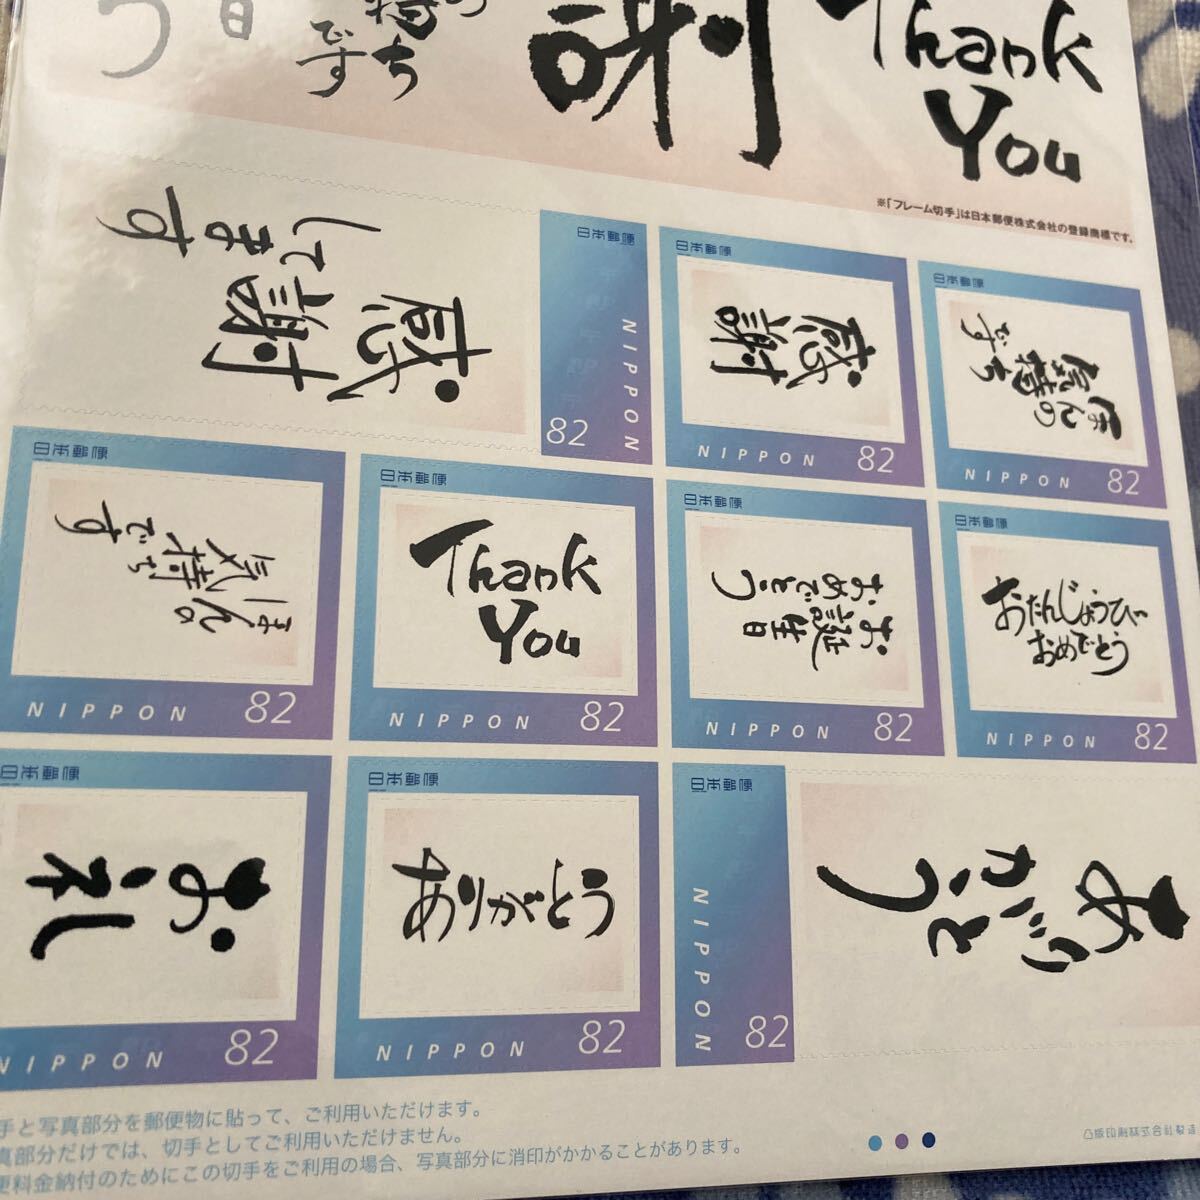 謝
Thank
You
持ち
です
日
う
※「フレーム切手」は日本郵便株式会社の登録商標です。
感謝
してます
日本郵便
NIPPON
82
日本郵便
感謝
NIPPON 82
日本郵便
ほんの
気持ち
です
NIPPON 82
日本郵便
ほんの
気持ち
です
NIPPON 82
日本郵便
Thank
You
NIPPON 82
日本郵便
お誕生日
おめでとう
NIPPON 82
日本郵便
おたんじょうび
おめでとう
NIPPON 82
日本郵便
お礼
NIPPON 82
日本郵便
ありがとう
NIPPON 82
日本郵便
NIPPON
82
ありがとう
手と写真部分を郵便物に貼って、ご利用いただけます。
真部分だけでは、切手としてご利用いただけません。
便料金納付のためにこの切手をご利用の場合、写真部分に消印がかかることがあります。
凸版印刷株式会社製造